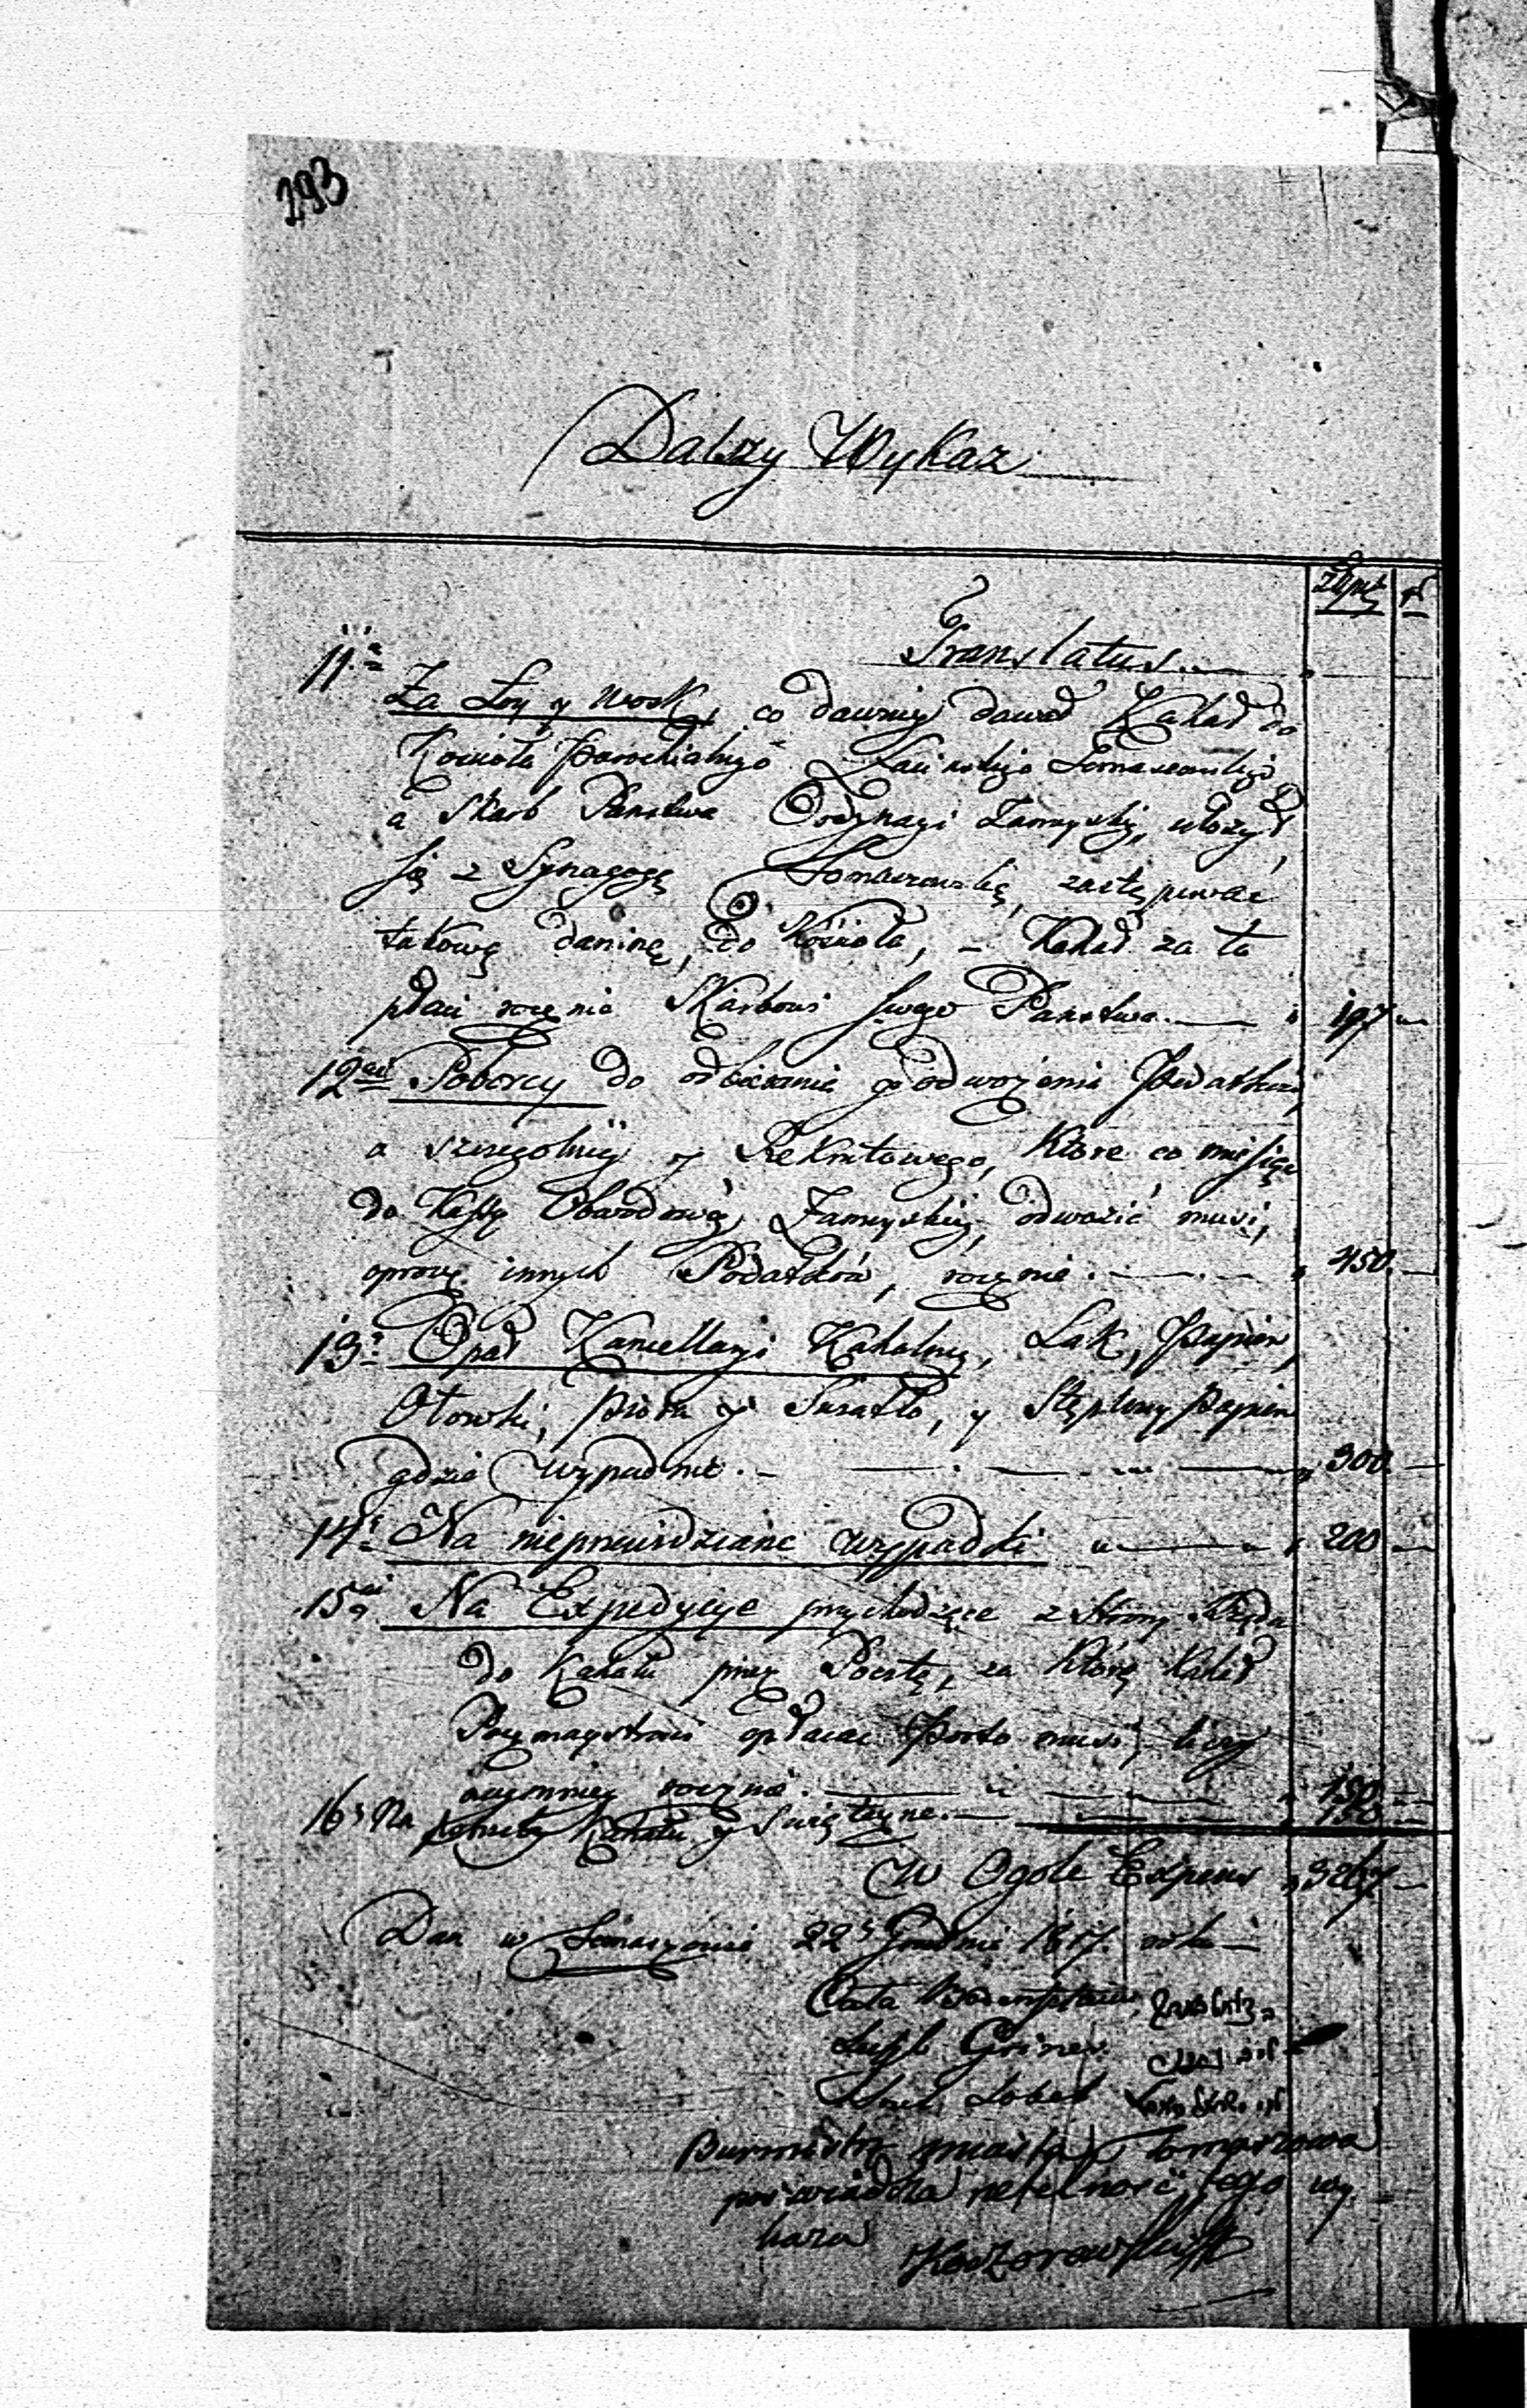 293
Dalszy Wykaz
Złpol gr
Translatus
11. Za Łoy y Wosk, co dawniey dawał Kahał do
Kościoła Parochialnego Tomaszowskiego
a Skarb Państwa Ordynacyi Zamoyskiey, ułożył
się z Synagogą Tomaszowską, zastępować
takową daninę, do Kościoła, – Kahał za to
płaci rocznie Skarbowi swego Państwa 197
12. Poborcy do odbierania y odwożenia Podatków,
a szczegolniey y Rekrutowego, które co miesiąc
do Kassy Obwodowey Zamoyskiey, odwozić musi,
oprocz innych Podatków, rocznie 450
13. Opał Kancellaryi Kahalney, Lak, Papier,
Ołowki, pióra y Swiatło, y Stęplowy papier
gdzie wypadnie 300
14. Na nieprzewidziane wypadki 200
15. Na Expedycye przychodzące z strony Rządu
do Kahału przez Pocztę, za którą Kahał
Poczmagistrowi opłacać Porto musi, licząc
naymniey rocznie 150
16. Na Kahału y Swiętyne 150
W Ogole Expens
Dan w Tomaszowie 22 Grudnia 1817. roku
Griner
Burmistrz miasta Tomaszowa
poświadcza retelność tego wy
kazu